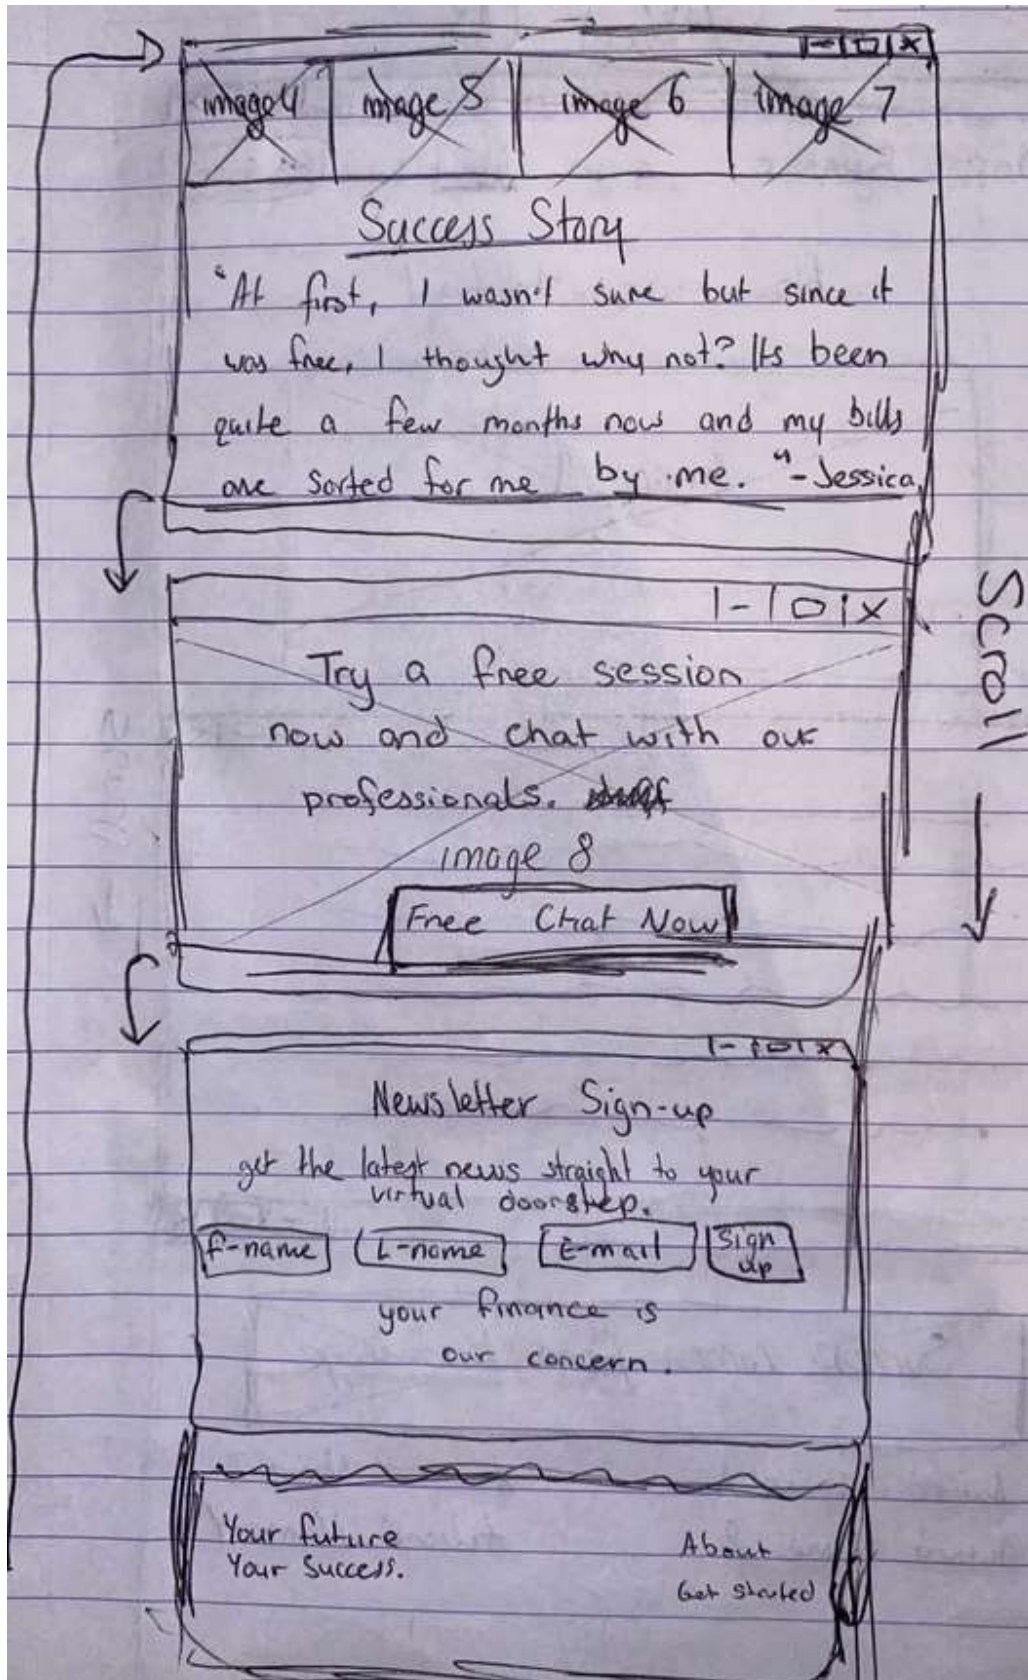 image 4 image 5 image 6 image 7
Success Story
"At first, I wasn't sure but since it
was free, I thought why not? Its been
quite a few months now and my bills
are sorted for me by me." -Jessica
Scroll
Try a free session
now and chat with our
professionals.
image 8
Free Chat Now
Newsletter Sign-up
get the latest news straight to your
virtual doorstep.
F-name L-name E-mail Sign
up
your finance is
our concern.
Your future
Your Success.
About
Get started